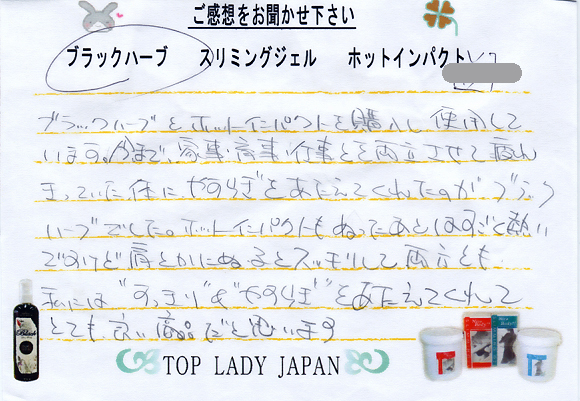 ご感想をお聞かせ下さい
ブラックハーブ スリミングジェル ホットインパクト
ブラックハーブとホットインパクトを購入し使用して
います。今まで、家事・育児・仕事とを両立させて疲れ
きっていた体にやすらぎをあたえてくれたのがブラック
ハーブでした。ホットインパクトもぬったあとはすごく熱い
ですけど肩とかにぬるとスッキリして両方とも
私には"すっきり"と"やすらぎ"をあたえてくれて
とても良い商品だと思います
TOP LADY JAPAN